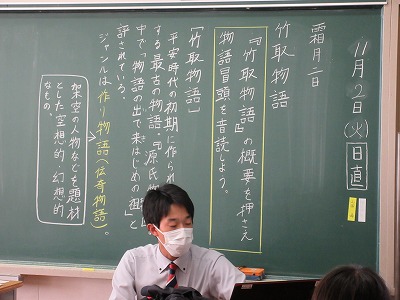 11月2日(火)日直
霜月二日
竹取物語
『竹取物語』の概要を押さえ
物語冒頭を音読しよう。
「竹取物語」
平安時代の初期に作られ
する最古の物語・『源氏物
中で、「物語の出で来はじめの祖」と
評されている。
ジャンルは作り物語(伝奇物語)。
架空の人物などを題材
とした空想的・幻想的
なもの。